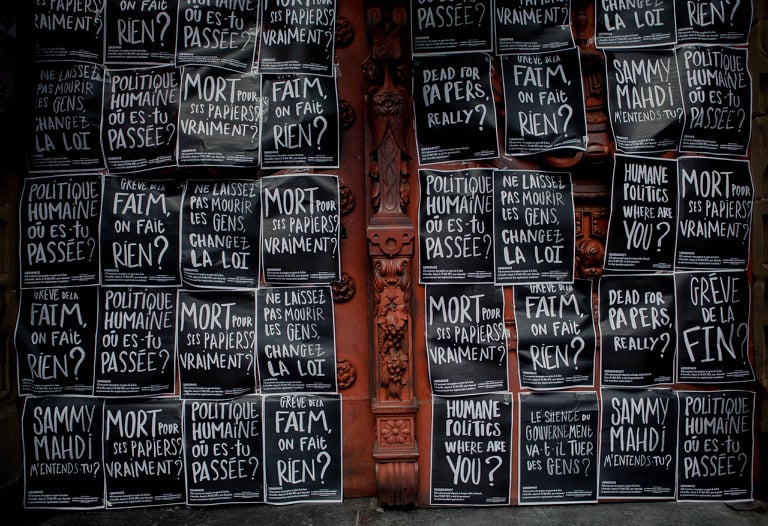 VRAIMENT?
FAIM,
ON FAIT
RIEN?
HUMAINE
OÙ ES-TU
PASSÉE?
MORT POUR
SES PAPIERS
VRAIMENT?
PASSÉE?
VRAIMENT?
CHANGEZ
LA LOI
RIEN?
NE LAISSEZ
PAS MOURIR
LES GENS,
CHANGEZ
LA LOI
POLITIQUE
HUMAINE
OÙ ES-TU
PASSÉE?
MORT POUR
SES PAPIERS
VRAIMENT?
GRÈVE DE LA
FAIM,
ON FAIT
RIEN?
DEAD FOR
PAPERS,
REALLY?
GRÈVE DE LA
FAIM,
ON FAIT
RIEN?
SAMMY
MAHDI
M'ENTENDS-TU?
POLITIQUE
HUMAINE
OÙ ES-TU
PASSÉE?
POLITIQUE
HUMAINE
OÙ ES-TU
PASSÉE?
GRÈVE DE LA
FAIM,
ON FAIT
RIEN?
NE LAISSEZ
PAS MOURIR
LES GENS,
CHANGEZ
LA LOI
MORT POUR
SES PAPIERS
VRAIMENT?
POLITIQUE
HUMAINE
OÙ ES-TU
PASSÉE?
NE LAISSEZ
PAS MOURIR
LES GENS,
CHANGEZ
LA LOI
HUMANE
POLITICS
WHERE ARE
YOU?
MORT POUR
SES PAPIERS
VRAIMENT?
GRÈVE DE LA
FAIM,
ON FAIT
RIEN?
POLITIQUE
HUMAINE
OÙ ES-TU
PASSÉE?
MORT POUR
SES PAPIERS
VRAIMENT?
NE LAISSEZ
PAS MOURIR
LES GENS,
CHANGEZ
LA LOI
MORT POUR
SES PAPIERS
VRAIMENT?
GRÈVE DE LA
FAIM,
ON FAIT
RIEN?
DEAD FOR
PAPERS,
REALLY?
GRÈVE
DE LA
FIN?
SAMMY
MAHDI
M'ENTENDS-TU?
MORT POUR
SES PAPIERS
VRAIMENT?
POLITIQUE
HUMAINE
OÙ ES-TU
PASSÉE?
GRÈVE DE LA
FAIM,
ON FAIT
RIEN?
HUMANE
POLITICS
WHERE ARE
YOU?
LE SILENCE DU
GOUVERNEMENT
VA-T-IL TUER
DES GENS?
SAMMY
MAHDI
M'ENTENDS-TU?
POLITIQUE
HUMAINE
OÙ ES-TU
PASSÉE?